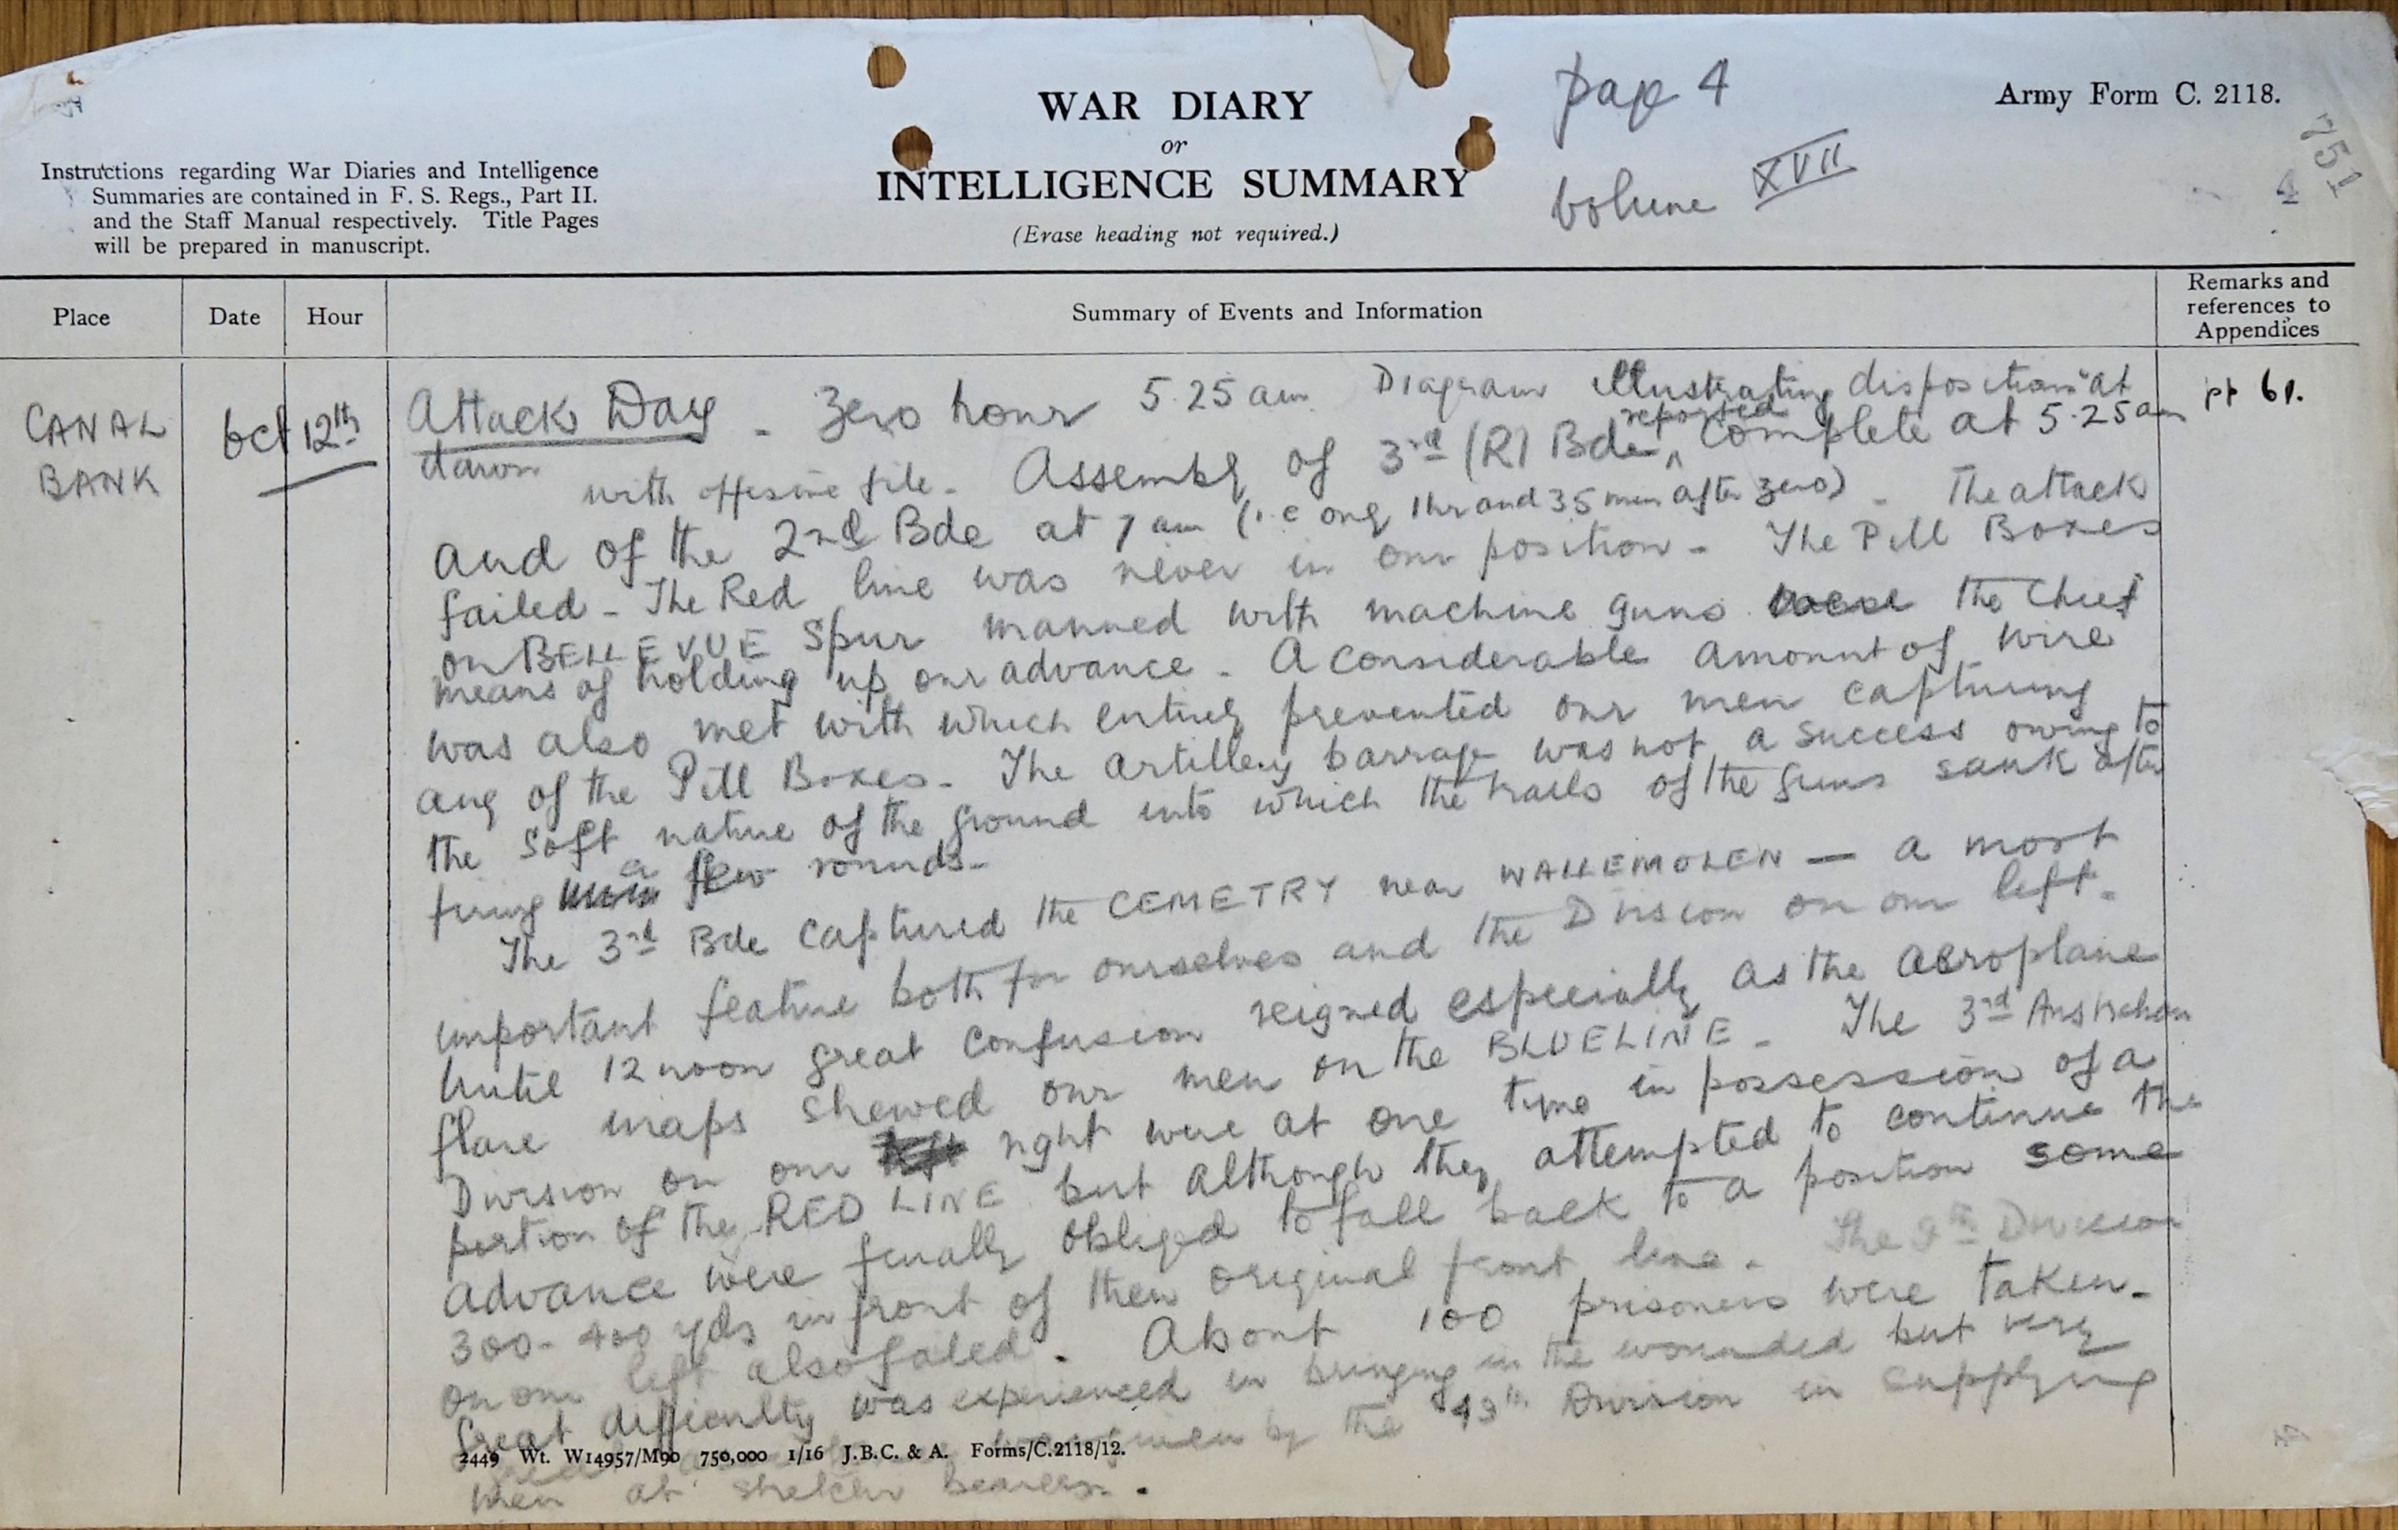 WAR DIARY
or
INTELLIGENCE SUMMARY
(Erase heading not required.)
page 4
Volume XVII
Army Form C. 2118.
751
4
Instructions regarding War Diaries and Intelligence
Summaries are contained in F. S. Regs., Part II.
and the Staff Manual respectively. Title Pages
will be prepared in manuscript.
Place
Date
Hour
Summary of Events and Information
Remarks and
references to
Appendices
CANAL
BANK
Oct 12th
Attack Day - Zero hour 5.25 am. Diagram illustrating dispositions at
dawn with offensive file. Assembly of 3rd (R) Bde reported complete at 5.25 am
61.
and of the 2nd Bde at 7 am (i.e only 1hr and 35 min after zero) - The attack
failed - The Red line was never in our position - The Pill Boxes
on BELLEVUE Spur manned with machine guns were the chief
means of holding up our advance - A considerable amount of wire
was also met with which entirely prevented our men capturing
any of the Pill Boxes - The artillery barrage was not a success owing to
the soft nature of the ground into which the trails of the guns sank after
firing a few rounds -
The 3rd Bde captured the CEMETRY near WALLEMOLEN — a most
important feature both for ourselves and the Division on our left.
Until 12 noon great confusion reigned especially as the aeroplane
flare maps shewed our men on the BLUELINE - The 3rd Australian
Division on our right were at one time in possession of a
portion of the RED LINE but although they attempted to continue the
advance were finally obliged to fall back to a position some
300 - 400 yds in front of their original front line. The 9th Division
on our left also failed. About 100 prisoners were taken.
Great difficulty was experienced in bringing in the wounded but very
given by the 49th Division in supplying
men at stretcher bearers.
2449 Wt. W14957/M90 750,000 1/16 J.B.C. & A. Forms/C.2118/12.